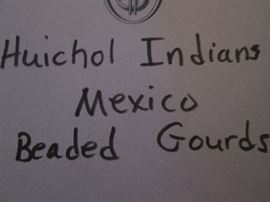 Huichol Indians
Mexico
Beaded Gourds